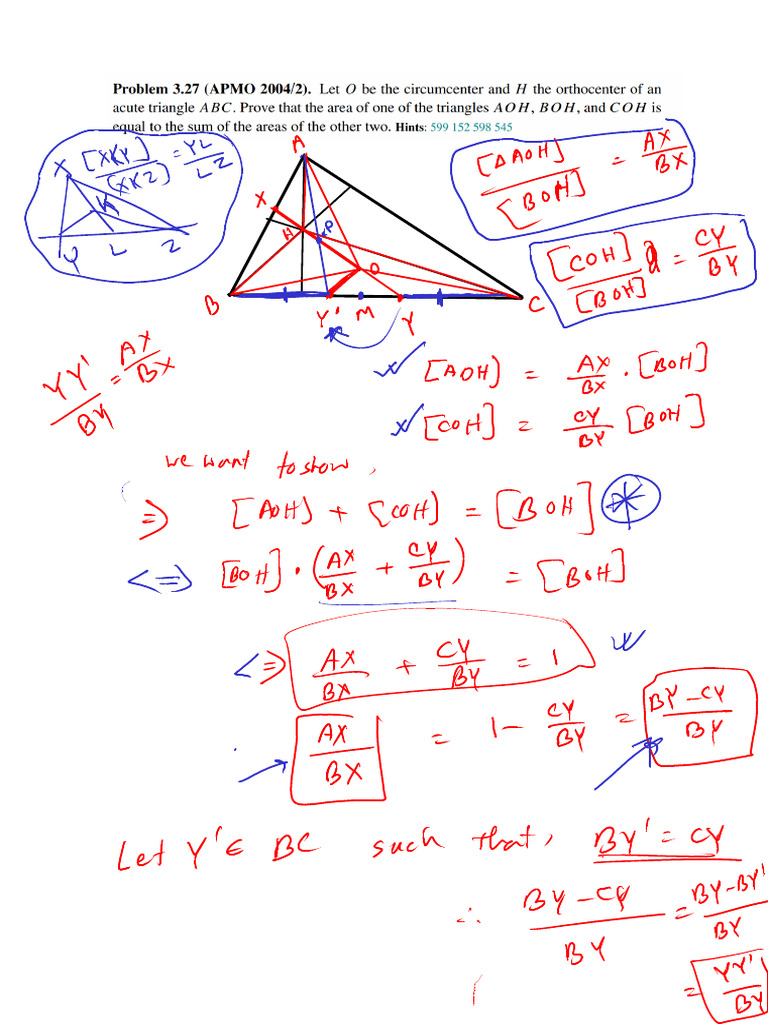 Problem 3.27 (APMO 2004/2). Let O be the circumcenter and H the orthocenter of an
acute triangle ABC. Prove that the area of one of the triangles AOH, BOH, and COH is
equal to the sum of the areas of the other two. Hints: 599 152 598 545
[XKY]/[XKZ] = YL/LZ
X
K
Y L Z
A
X
H
P
O
B
Y' M Y
C
[△AOH]/[BOH] = AX/BX
[COH]/[BOH] = CY/BY
YY'/BY = AX/BX
[AOH] = AX/BX · [BOH]
[COH] = CY/BY [BOH]
we want to show,
⇒ [AOH] + [COH] = [BOH] *
<=> [BOH] · (AX/BX + CY/BY) = [BOH]
<=> AX/BX + CY/BY = 1
AX/BX = 1 - CY/BY = BY-CY/BY
Let Y' ∈ BC such that, BY' = CY
∴ BY-CY/BY = BY-BY'/BY
= YY'/BY